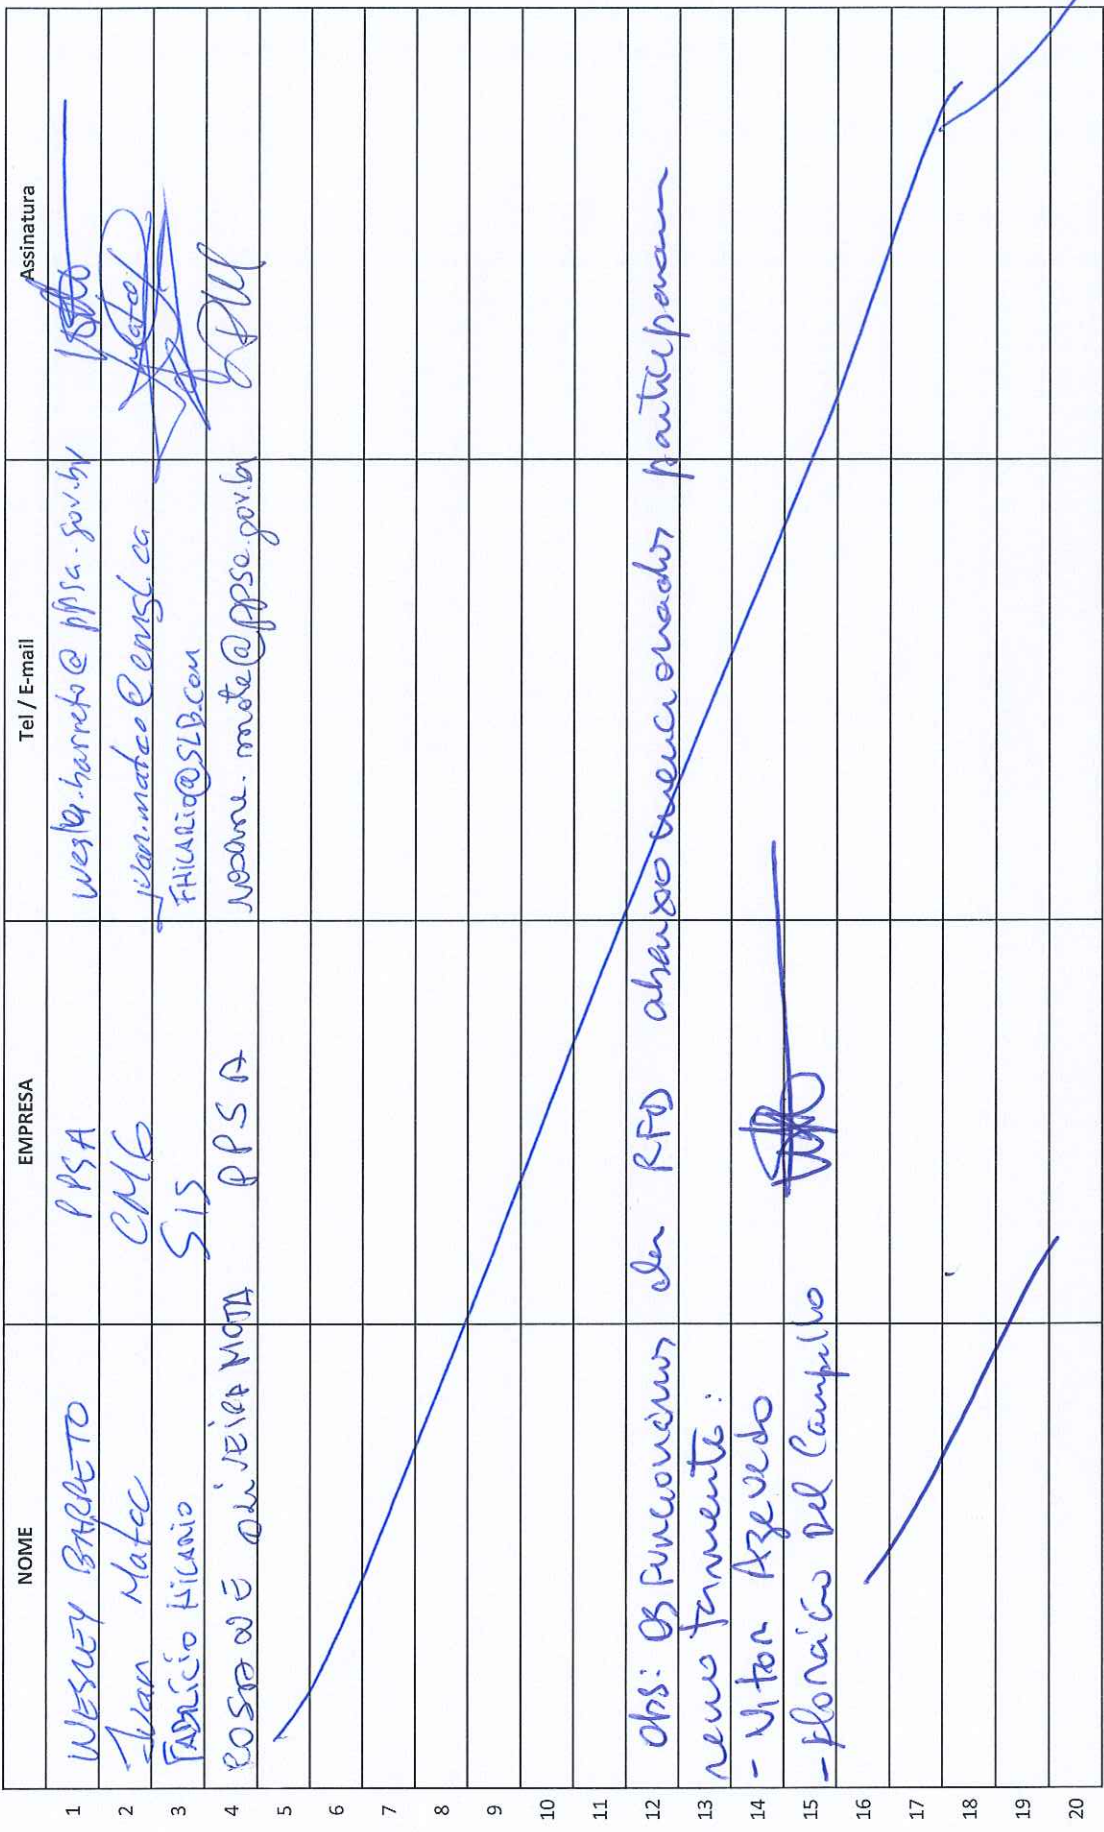 NOME EMPRESA Tel / E-mail Assinatura
1 WESLEY BARRETO PPSA wesley.barreto@ppsa.gov.br
2 Juan Mateo CMG juan.mateo@cmgl.ca
3 FABRÍCIO HILARIO SIS FHILARIO@SLB.com
4 ROSANE OLIVEIRA MOTA PPSA rosane.mota@ppsa.gov.br
5
6
7
8
9
10
11
12 Obs: Os funcionários da RFD abaixo mencionados participaram
13 remotamente:
14 - Vitor Azevedo
15 - Horácio Del Campillo
16
17
18
19
20